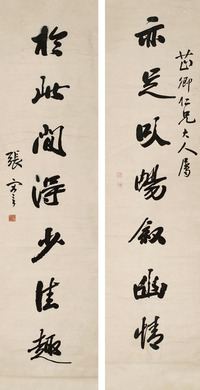 芷卿仁兄大人屬
亦足以暢敘幽情
於此間得少佳趣
張之言